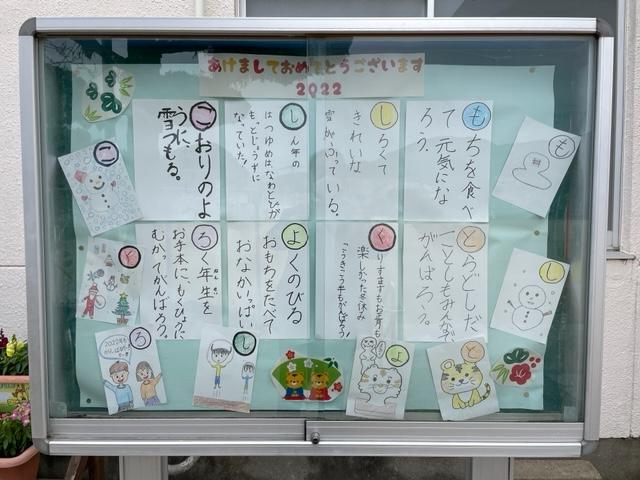 あけましておめでとうございます
2022
もちを食べ
て元気にな
ろう。
しろくて
きれいな
雪がふっている。
しん年の
はつゆめはなわとびが
もっとじょうずに
なっていた!
こおりのよ
うに
雪つもる。
とらどしだ、
ことしもみなで
がんばろう。
くりすますもお正月も
楽しかった冬休み
よくのびる
おもちをたべて
おなかいっぱい
ろく年生を
お手本に、もくひょうに
むかってがんばろう。
も
こ
し
く
ろ
し
よ
と
2022年も